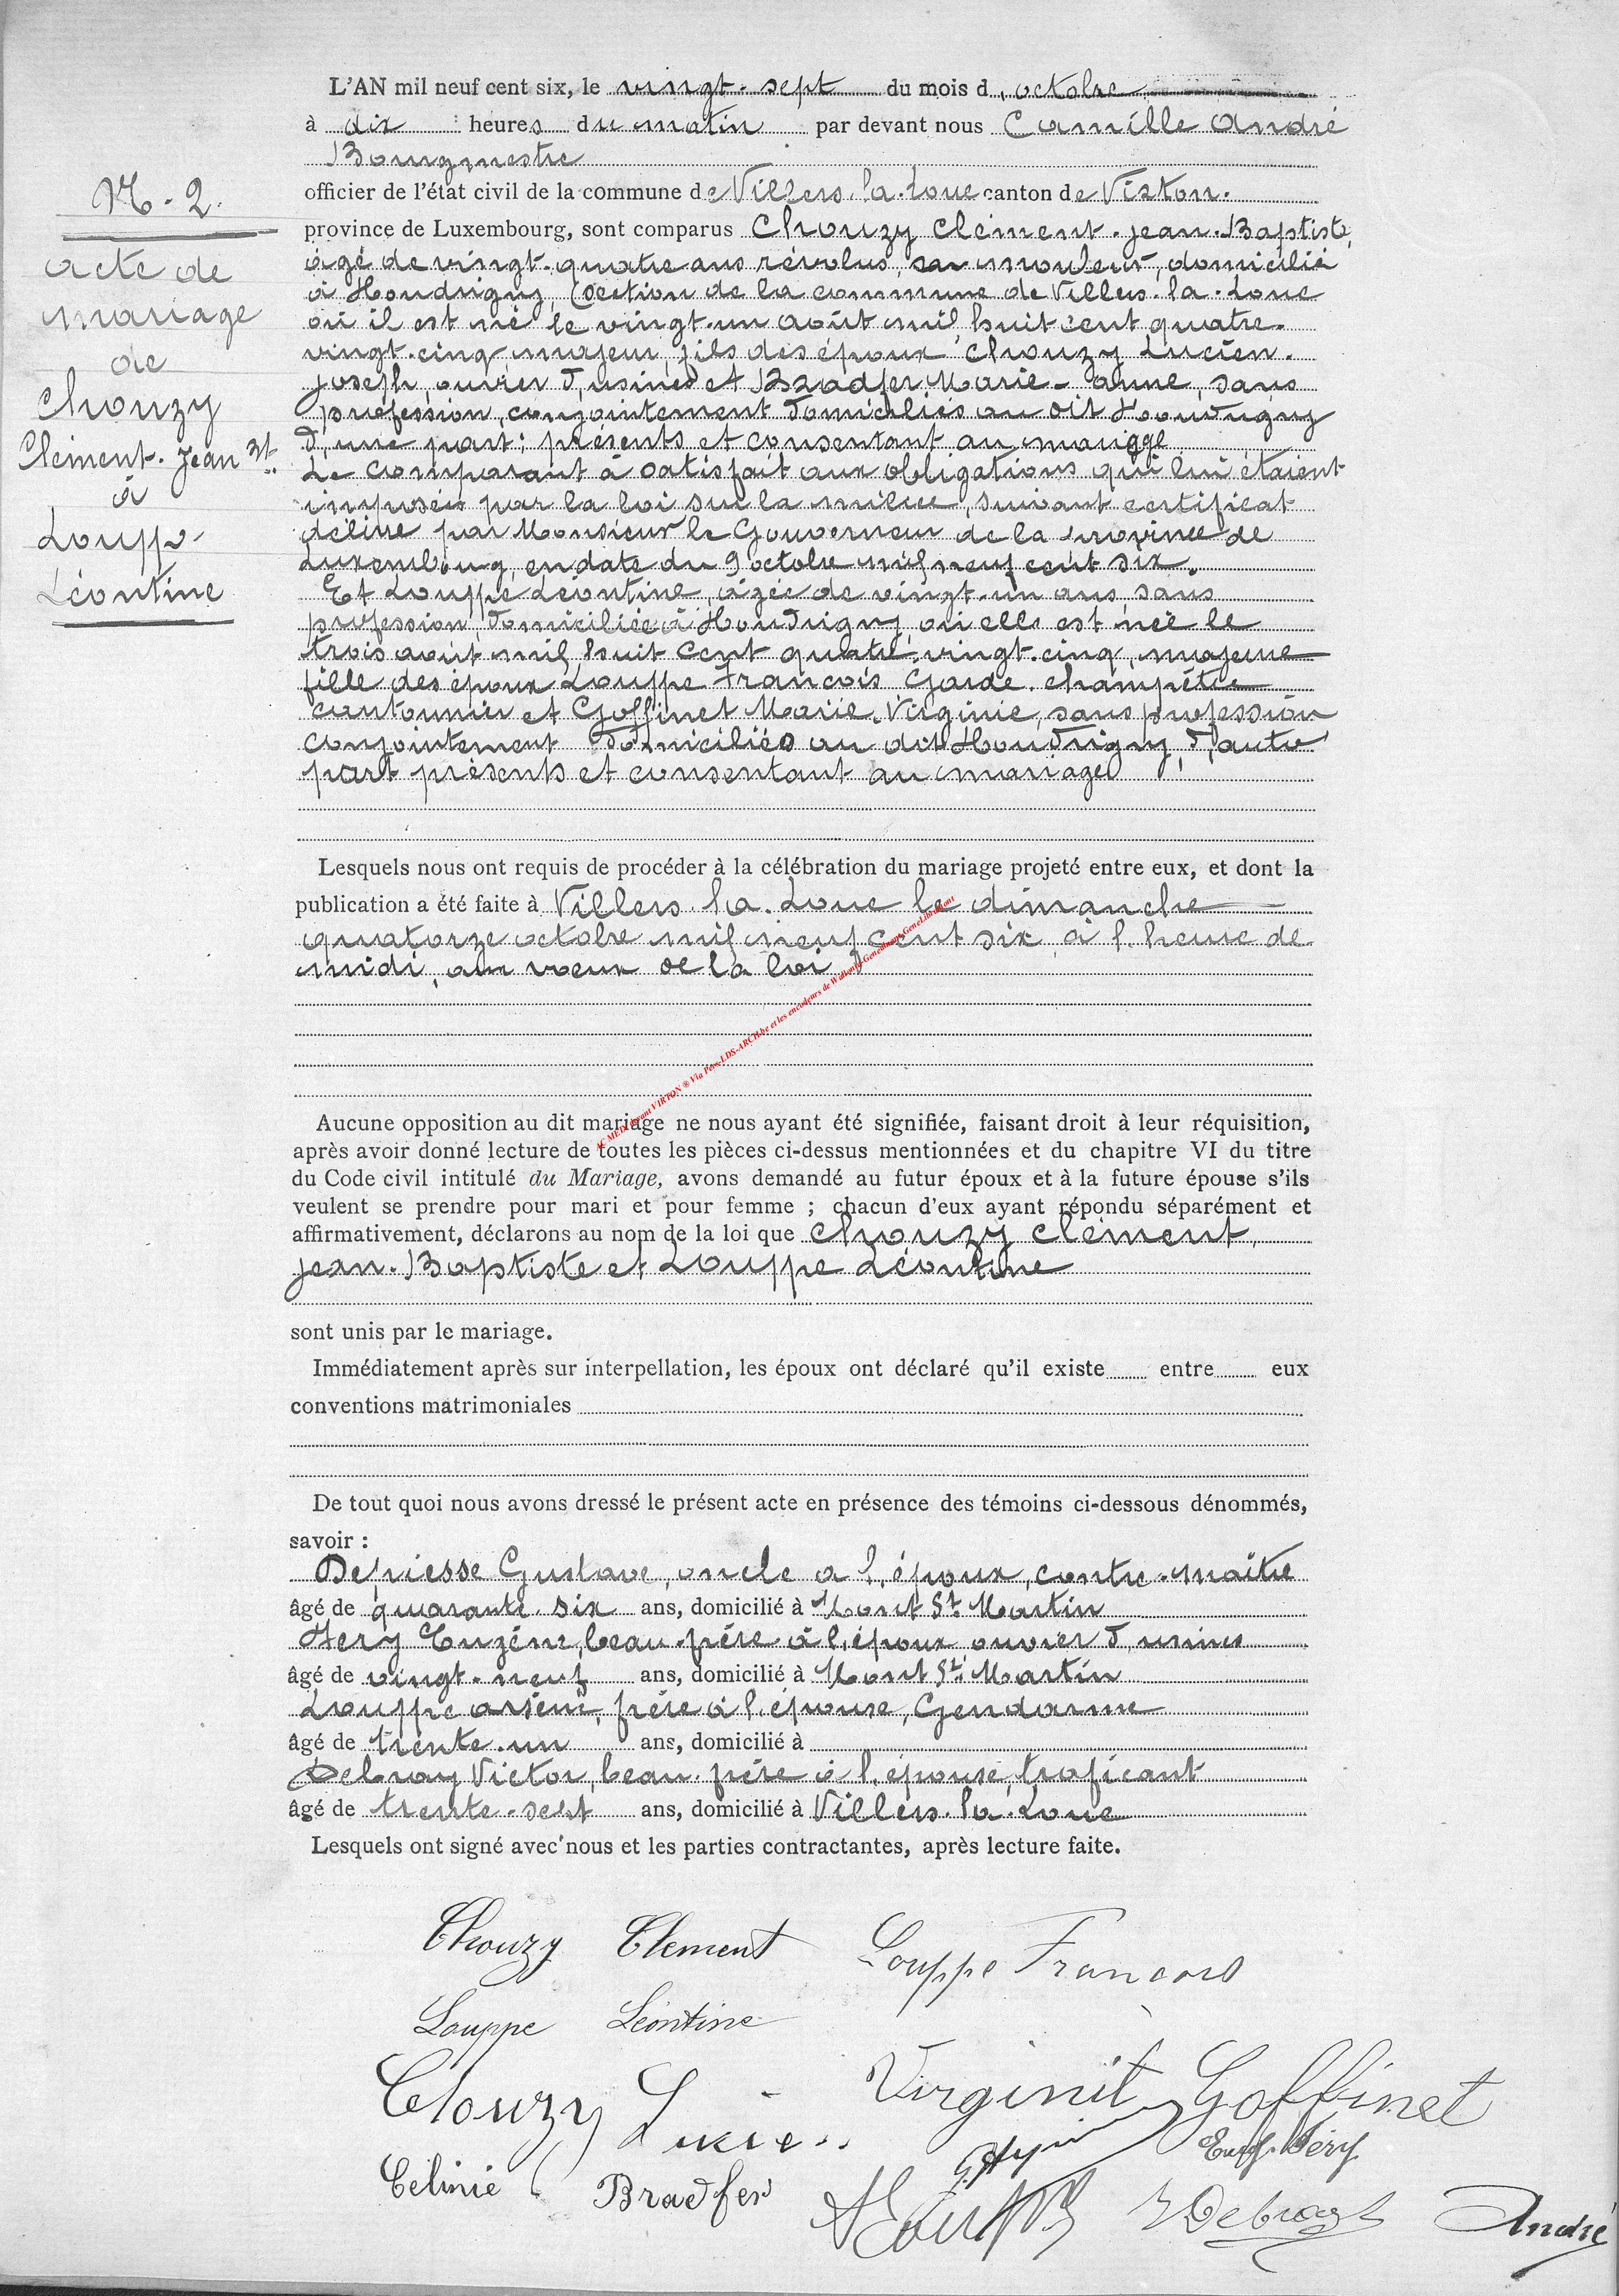 L'AN mil neuf cent six, le vingt-sept du mois d'octobre
à dix heures du matin par devant nous Camille André
Bourgmestre
officier de l'état civil de la commune de Villers-la-Loue canton de Virton.
province de Luxembourg, sont comparus Chouzy Clément-Jean-Baptiste,
âgé de vingt-quatre ans révolus, mouleur, domicilié
à Houdrigny (section de la commune de Villers-la-Loue
où il est né le vingt-un août mil huit cent quatre-
vingt-cinq majeur, fils des époux Chouzy Lucien-
Joseph, ouvrier d'usines et Bradfer Marie-Anne, sans
profession, conjointement domiciliés au dit Houdrigny
d'une part; présents et consentant au mariage
Le comparant a satisfait aux obligations qui lui étaient
imposées par la loi sur la milice, suivant certificat
délivré par Monsieur le Gouverneur de la province de
Luxembourg, en date du 9 octobre mil neuf cent six.
Et Louppe Léontine, âgée de vingt-un ans, sans
profession, domiciliée à Houdrigny, où elle est née le
trois août mil huit cent quatre-vingt-cinq, majeure
fille des époux Louppe François Garde-champêtre
cantonnier et Goffinet Marie-Virginie, sans profession
conjointement domiciliés au dit Houdrigny, d'autre
part présents et consentant au mariage
N-2.
acte de
mariage
de
Chouzy
Clément-Jean Bt.
à
Louppe
Léontine
Lesquels nous ont requis de procéder à la célébration du mariage projeté entre eux, et dont la
publication a été faite à Villers-la-Loue le dimanche
quatorze octobre mil neuf cent six à l'heure de
midi, au vœux de la loi
AC MEDI VIRTON ® Via LDS-ARCH.be et les encodeurs de
Aucune opposition au dit mariage ne nous ayant été signifiée, faisant droit à leur réquisition,
après avoir donné lecture de toutes les pièces ci-dessus mentionnées et du chapitre VI du titre
du Code civil intitulé du Mariage, avons demandé au futur époux et à la future épouse s'ils
veulent se prendre pour mari et pour femme ; chacun d'eux ayant répondu séparément et
affirmativement, déclarons au nom de la loi que Chouzy Clément,
Jean-Baptiste et Louppe Léontine
sont unis par le mariage.
Immédiatement après sur interpellation, les époux ont déclaré qu'il existe entre eux
conventions matrimoniales
De tout quoi nous avons dressé le présent acte en présence des témoins ci-dessous dénommés,
savoir :
Gustave, oncle a l'époux, contre-maître
âgé de quarante-six ans, domicilié à Mont St. Martin
Féry Eugéne, beau-frére à l'époux ouvrier d'usines
âgé de vingt-neuf ans, domicilié à Mont St. Martin
Louppe arséne, frére à l'épouse, Gendarme
âgé de trente-un ans, domicilié à
Debroay Victor, beau-frére à l'épouse, traficant
âgé de trente-sept ans, domicilié à Villers-la-Loue
Lesquels ont signé avec nous et les parties contractantes, après lecture faite.
Chouzy Clement Louppe Francois
Louppe Léontine
Chouzy Lucien Virginie Goffinet
Eug. Féry
Célinie Bradfer
André